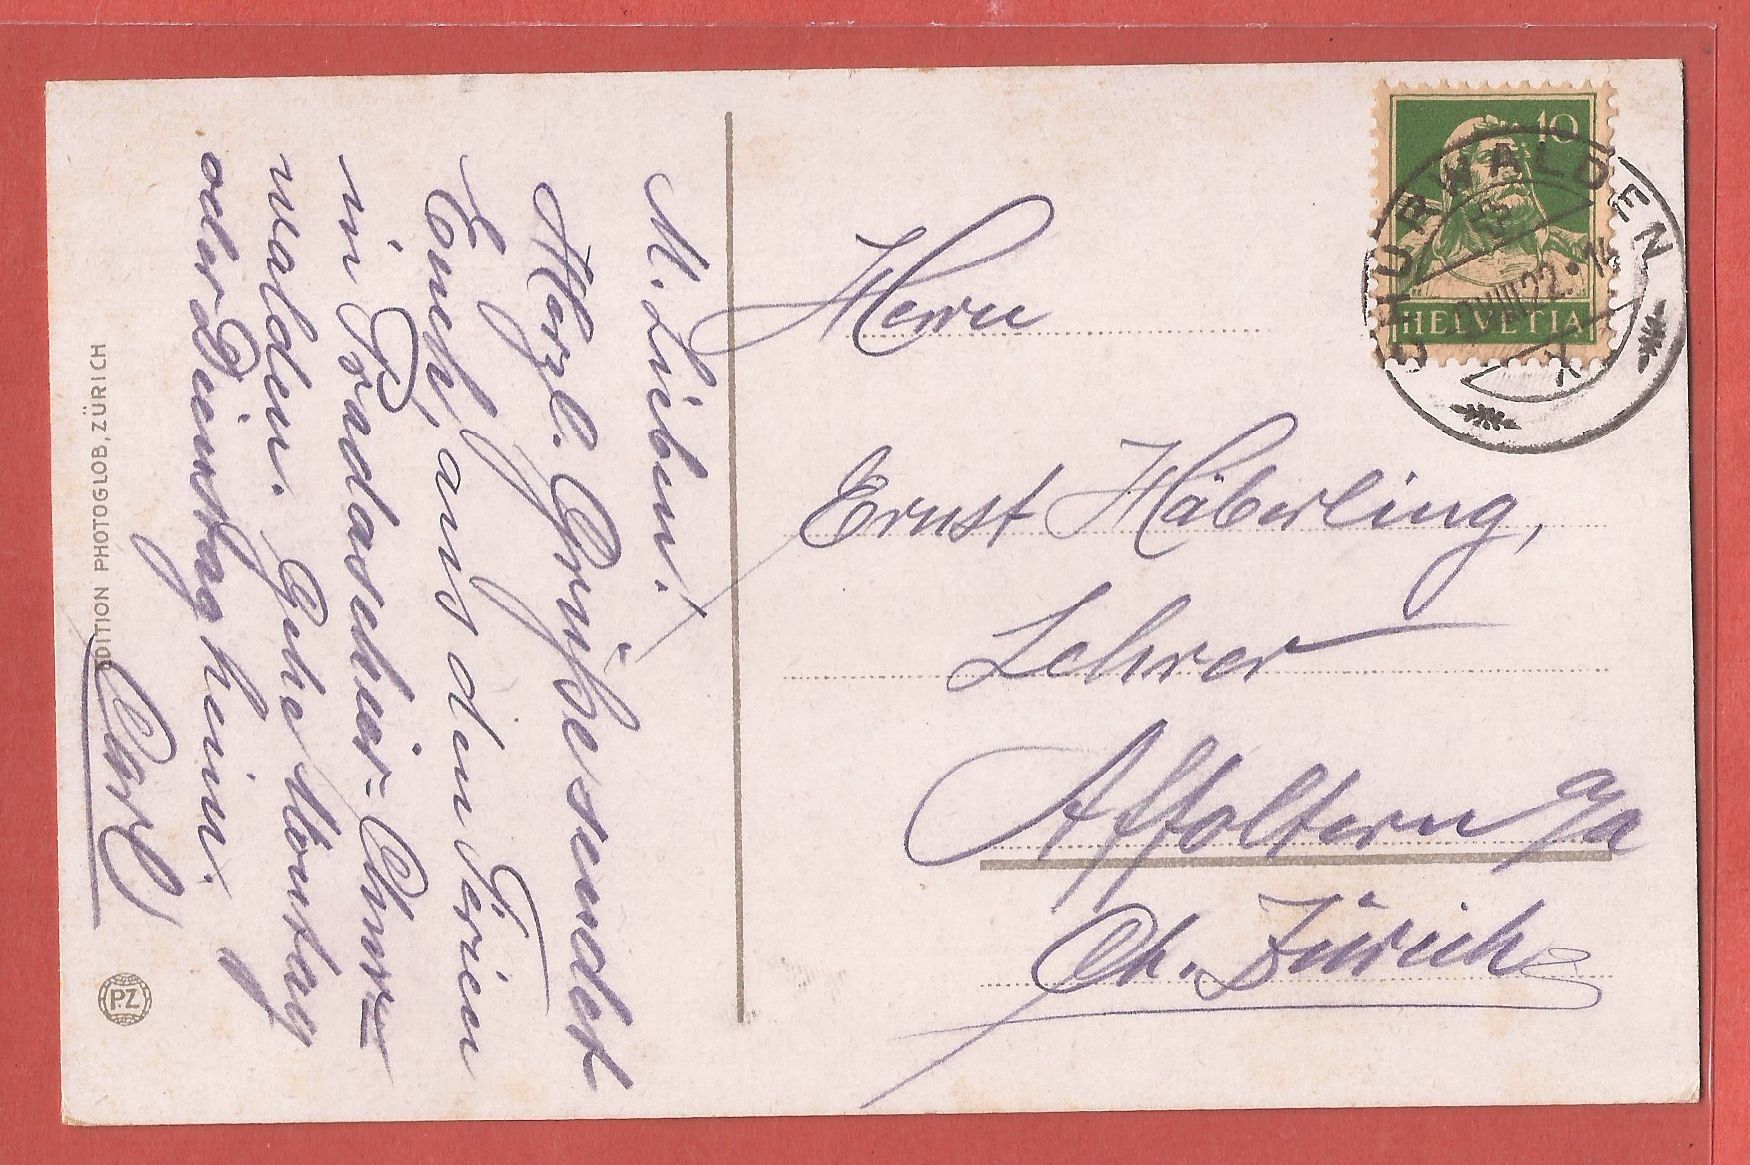 M. Lieben!
Herzl. Grüsse sendet
Euch, aus den Ferien
in Pradaschier-Chur-
walden. Gehe Montag
oder Dienstag heim.
Carl
EDITION PHOTOGLOB, ZÜRICH
P.Z
10
HELVETIA
CHURWALDEN
VIII.22.14
Herrn
Ernst Häberling,
Lehrer
Affoltern a/a
Ct. Zürich